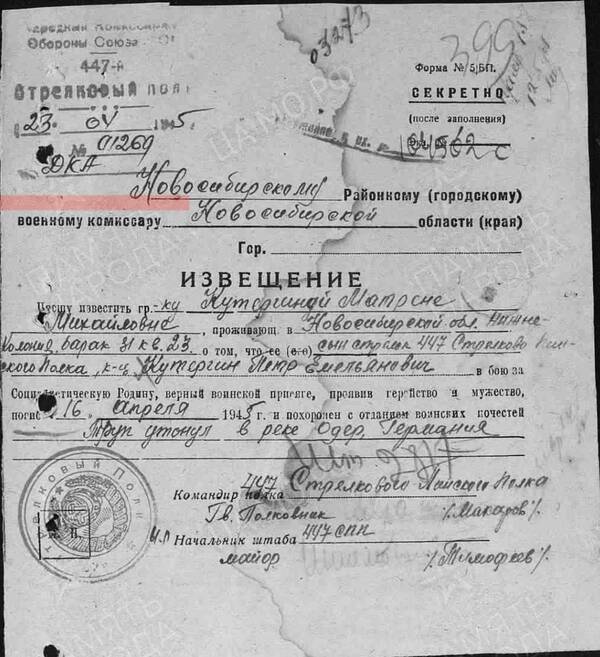 Народный Комиссариат
Обороны Союза
447-й
Стрелковый полк
23 04 1945.
№ 01269
ДКА
03273
399
Форма № 5/БП.
СЕКРЕТНО
(после заполнения)
Новосибирскому Районному (городскому)
военному комиссару Новосибирской области (края)
Гор.
ИЗВЕЩЕНИЕ
Прошу известить гр-ку Кутергиной Матрене
Михайловне, проживающ. в Новосибирской обл. Нижне
Колония, барак 31 кв. 23. о том, что ее (его) сын стрелок 447 Стрелково Пин-
ского Полка, к-ц Кутергин Петр Емельянович в бою за
Социалистическую Родину, верный воинской присяге, проявив геройство и мужество,
погиб 16 апреля 1945 г. и похоронен с отданием воинских почестей
Труп утонул в реке Одер, Германия
Командир полка 447 Стрелкового Полка
Гв. Полковник /Макаров/.
И.П Начальник штаба 447 СПП
майор /Тимофеев/.